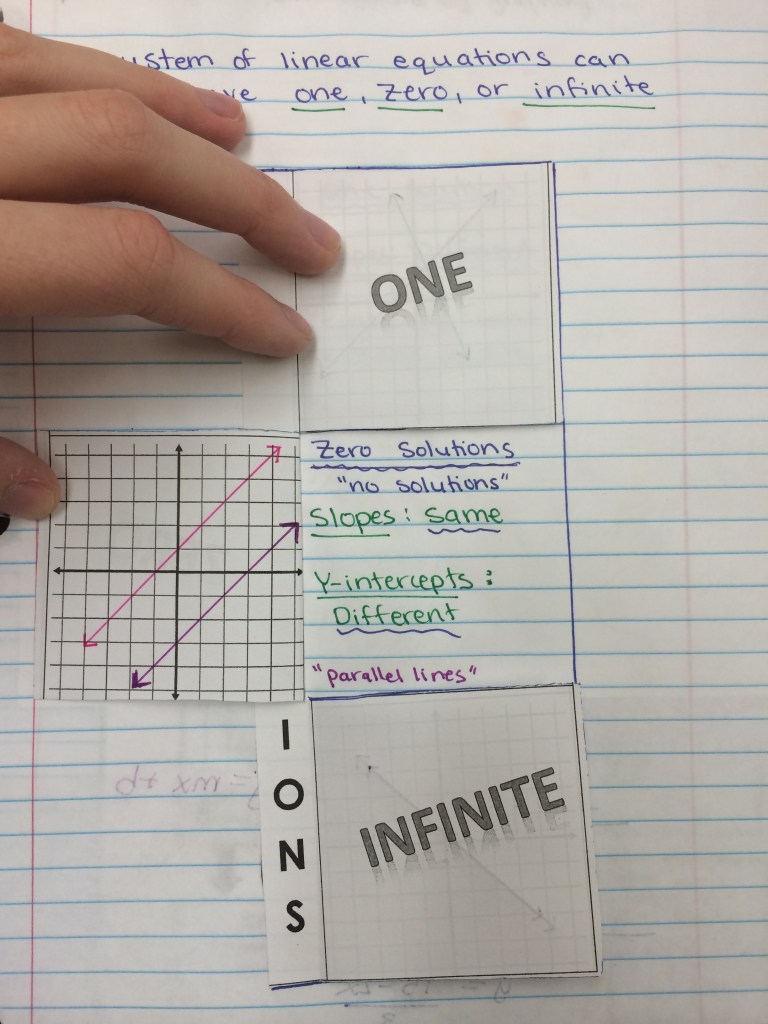 ystem of linear equations can
ve one, zero, or infinite
ONE
Zero Solutions
"no solutions"
Slopes: same
Y-intercepts:
Different
"parallel lines"
I
O
N
S
INFINITE